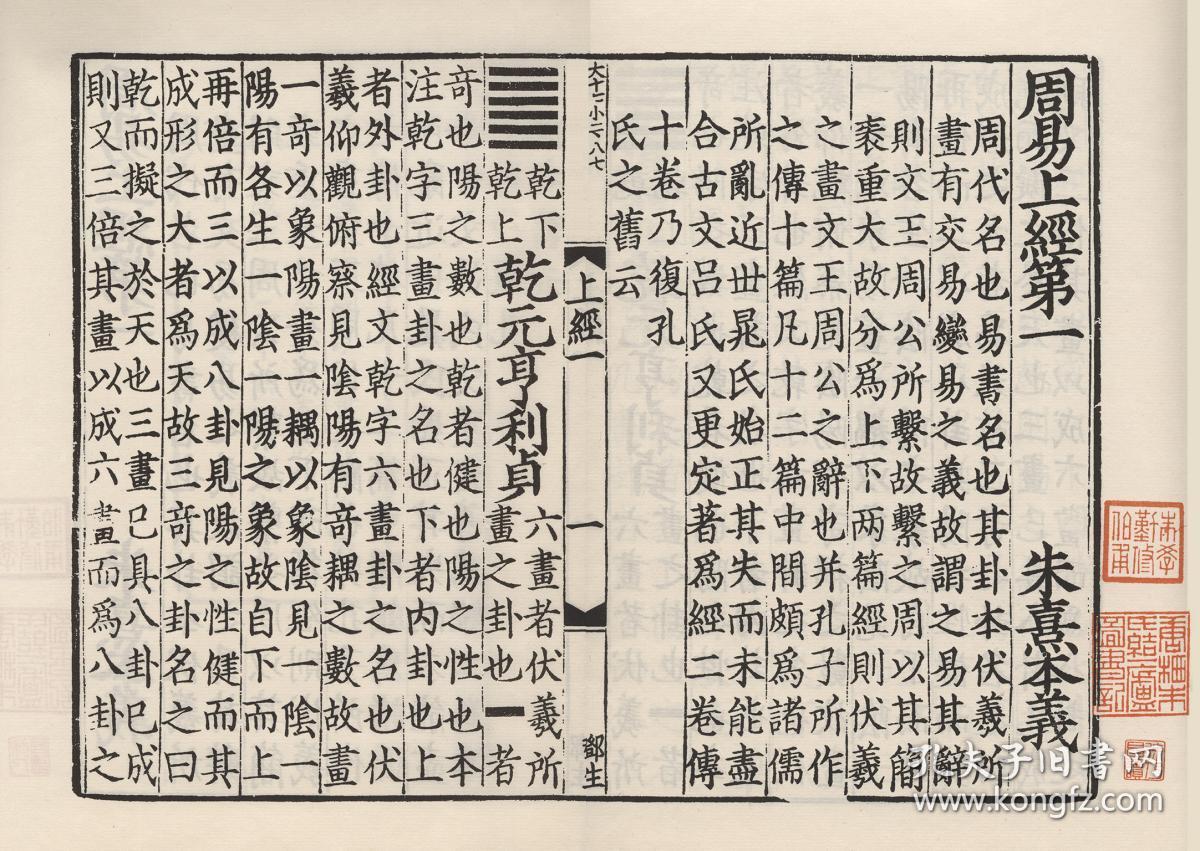 周易上經第一
朱熹本義
周代名也易書名也其卦本伏羲所
畫有交易變易之義故謂之易其辭
則文王周公所繫故繫之周以其簡
袠重大故分爲上下兩篇經則伏羲
之畫文王周公之辭也并孔子所作
之傳十篇凡十二篇中間頗爲諸儒
所亂近丗晁氏始正其失而未能盡
合古文吕氏又更定著爲經二卷傳
十卷乃復孔
氏之舊云
大十七小二八七
上經一
一
乾下
乾上
乾元亨利貞
六畫者伏羲所
畫之卦也一者
竒也陽之數也乾者健也陽之性也本
注乾字三畫卦之名也下者内卦也上
者外卦也經文乾字六畫卦之名也伏
羲仰觀俯察見陰陽有竒耦之數故畫
一竒以象陽畫一耦以象陰見一陰一
陽有各生一陰一陽之象故自下而上
再倍而三以成八卦見陽之性健而其
成形之大者爲天故三竒之卦名之曰
乾而擬之於天也三畫已具八卦已成
則又三倍其畫以成六畫而爲八卦之
孔夫子旧書网
www.kongfz.com